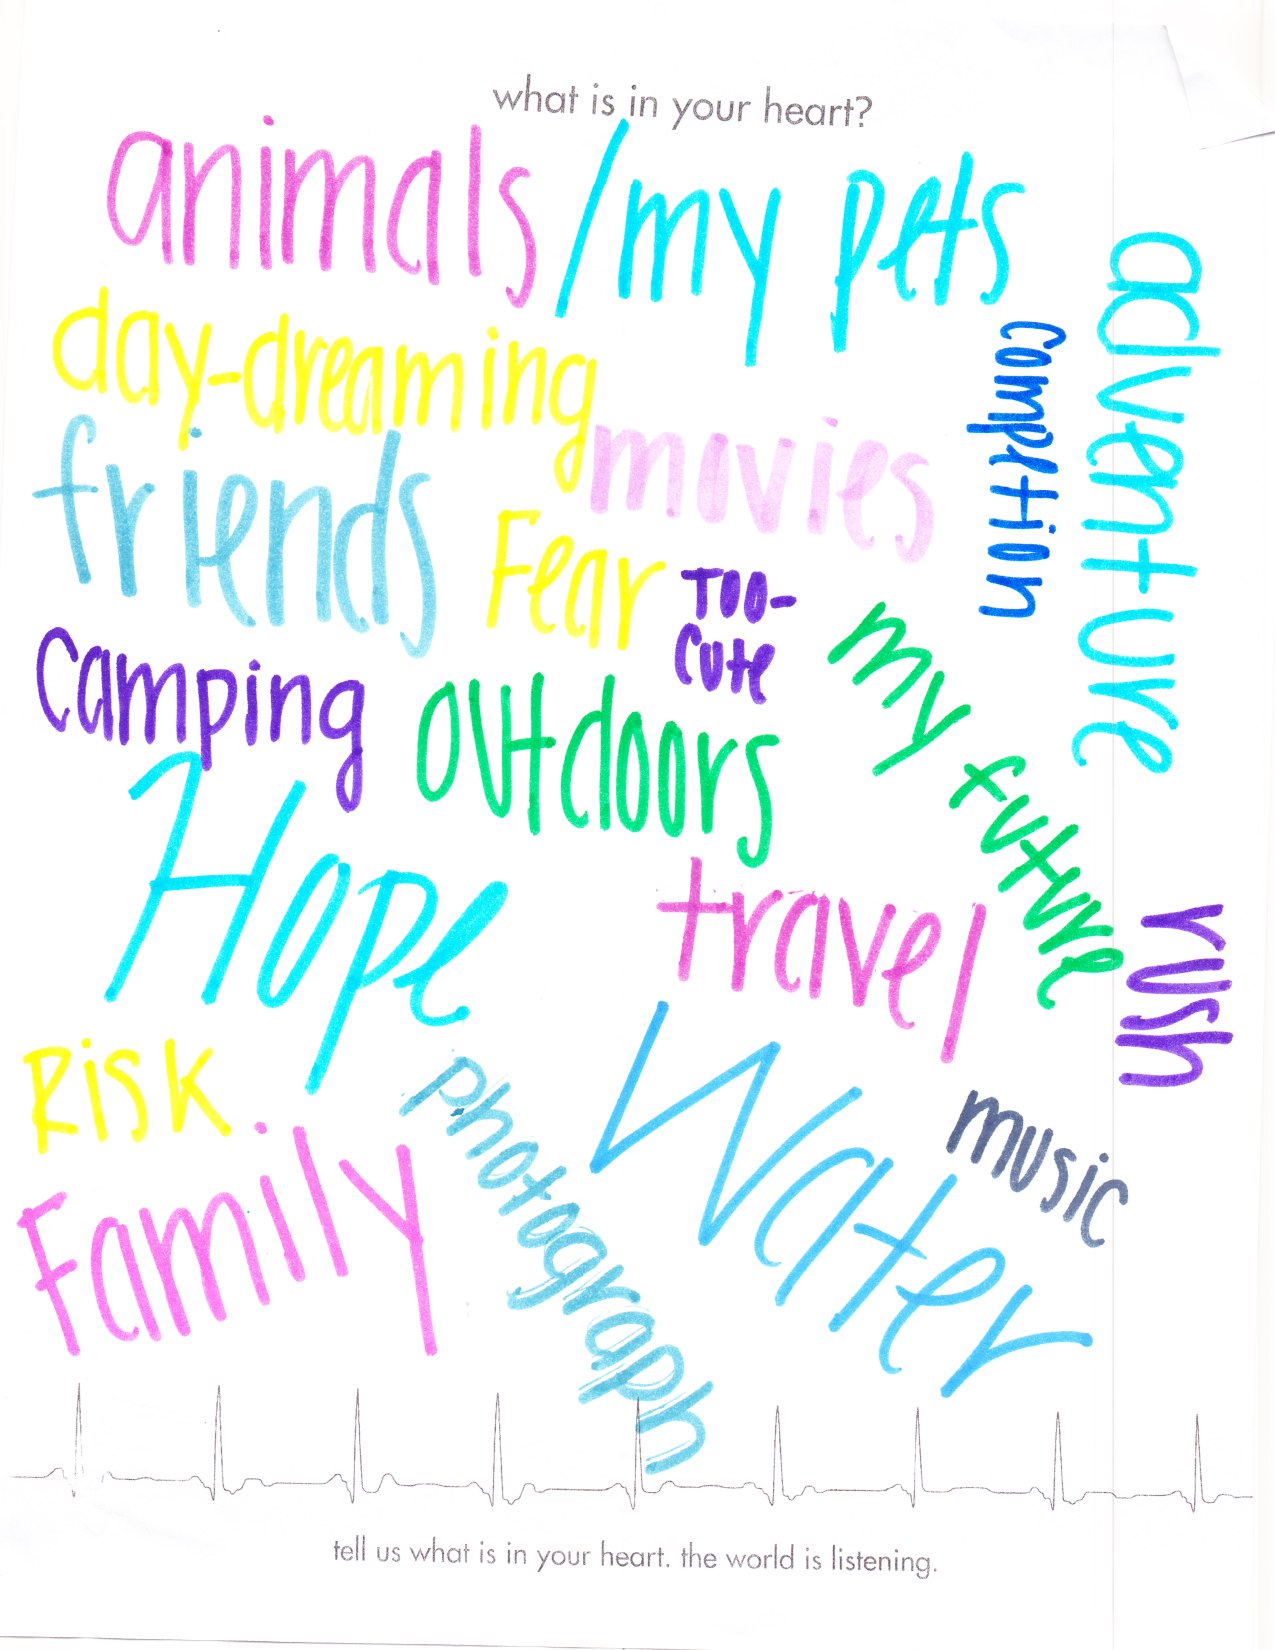 what is in your heart?
animals/my pets
adventure
compettion
day-dreaming
movies
friends
Fear
TOO-
cute
my future
camping
outdoors
Hope
travel
rush
RisK
photograph
Water
music
Family
tell us what is in your heart. the world is listening.